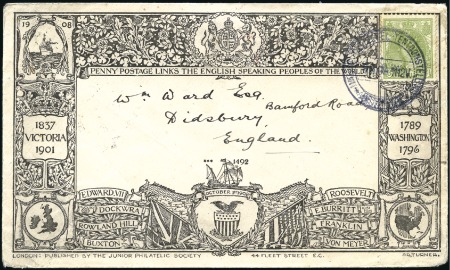 19 08
PENNY POSTAGE LINKS THE ENGLISH SPEAKING PEOPLES OF THE WORLD
Wm Ward Esq.
Bamford Road
Didsbury,
England.
1837
VICTORIA
1901
1789
WASHINGTON
1796
1492
OCTOBER
EDWARD VII
DOCKWRA
ROWLAND HILL
BUXTON
ROOSEVELT
E. BURRITT
FRANKLIN
VON MEYER
LONDON: PUBLISHED BY THE JUNIOR PHILATELIC SOCIETY 44 FLEET STREET E.C.
TURNER.